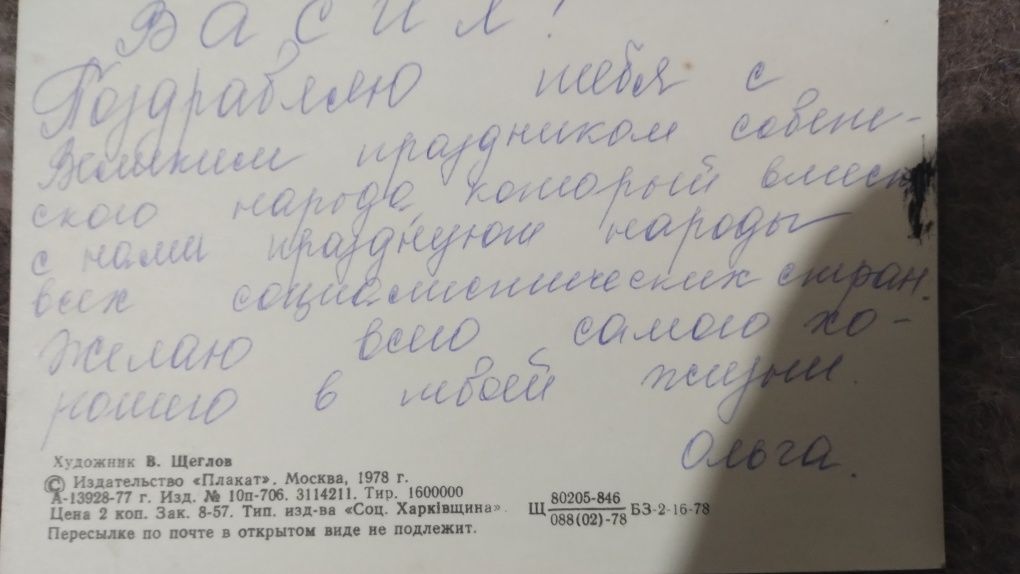 Васил!
Поздравляю тебя с
Великим праздником совет-
ского народа, который вмест
с нами празднуют народы
всех социалистических стран.
Желаю всего самого хо-
рошего в твоей жизни.
Ольга.
Художник В. Щеглов
© Издательство «Плакат». Москва, 1978 г.
А-13928-77 г. Изд. № 10п-706. 3114211. Тир. 1600000
Цена 2 коп. Зак. 8-57. Тип. изд-ва «Соц. Харківщина».
Щ 80205-846
088(02)-78 БЗ-2-16-78
Пересылке по почте в открытом виде не подлежит.